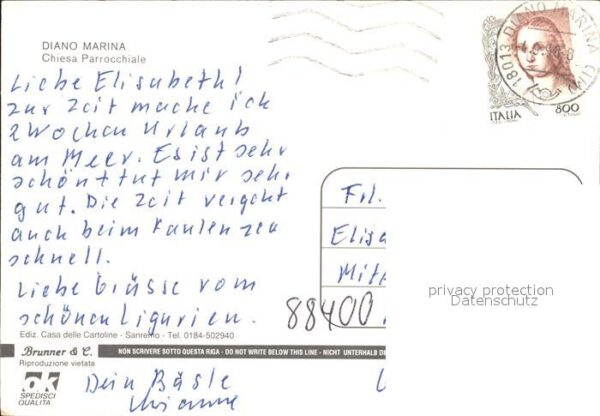 DIANO MARINA
Chiesa Parrocchiale
Liebe Elisabeth!
Zur Zeit mache ich
2 Wochen Urlaub
am Meer. Es ist sehr
schön + tut mir sehr
gut. Die Zeit vergeht
auch beim Faulenzen
schnell.
Liebe Grüsse vom
schönen Ligurien.
Ediz. Casa delle Cartoline - Sanremo - Tel. 0184-502940
Brunner & C.
Riproduzione vietata
NON SCRIVERE SOTTO QUESTA RIGA - DO NOT WRITE BELOW THIS LINE - NICHT UNTERHALB DE
ok
SPEDISCI
QUALITÀ
Dein Bäsle
18013 DIANO MARINA (IM)
ITALIA
800
Frl.
Elisa
Mitt
88400
privacy protection
Datenschutz